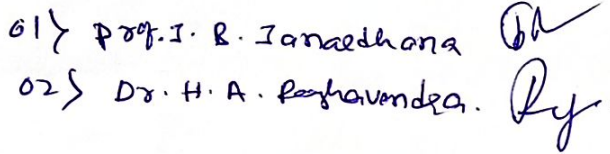 01) Prof. J. B. Janardhana
02) Dr. H. A. Raghavendra.